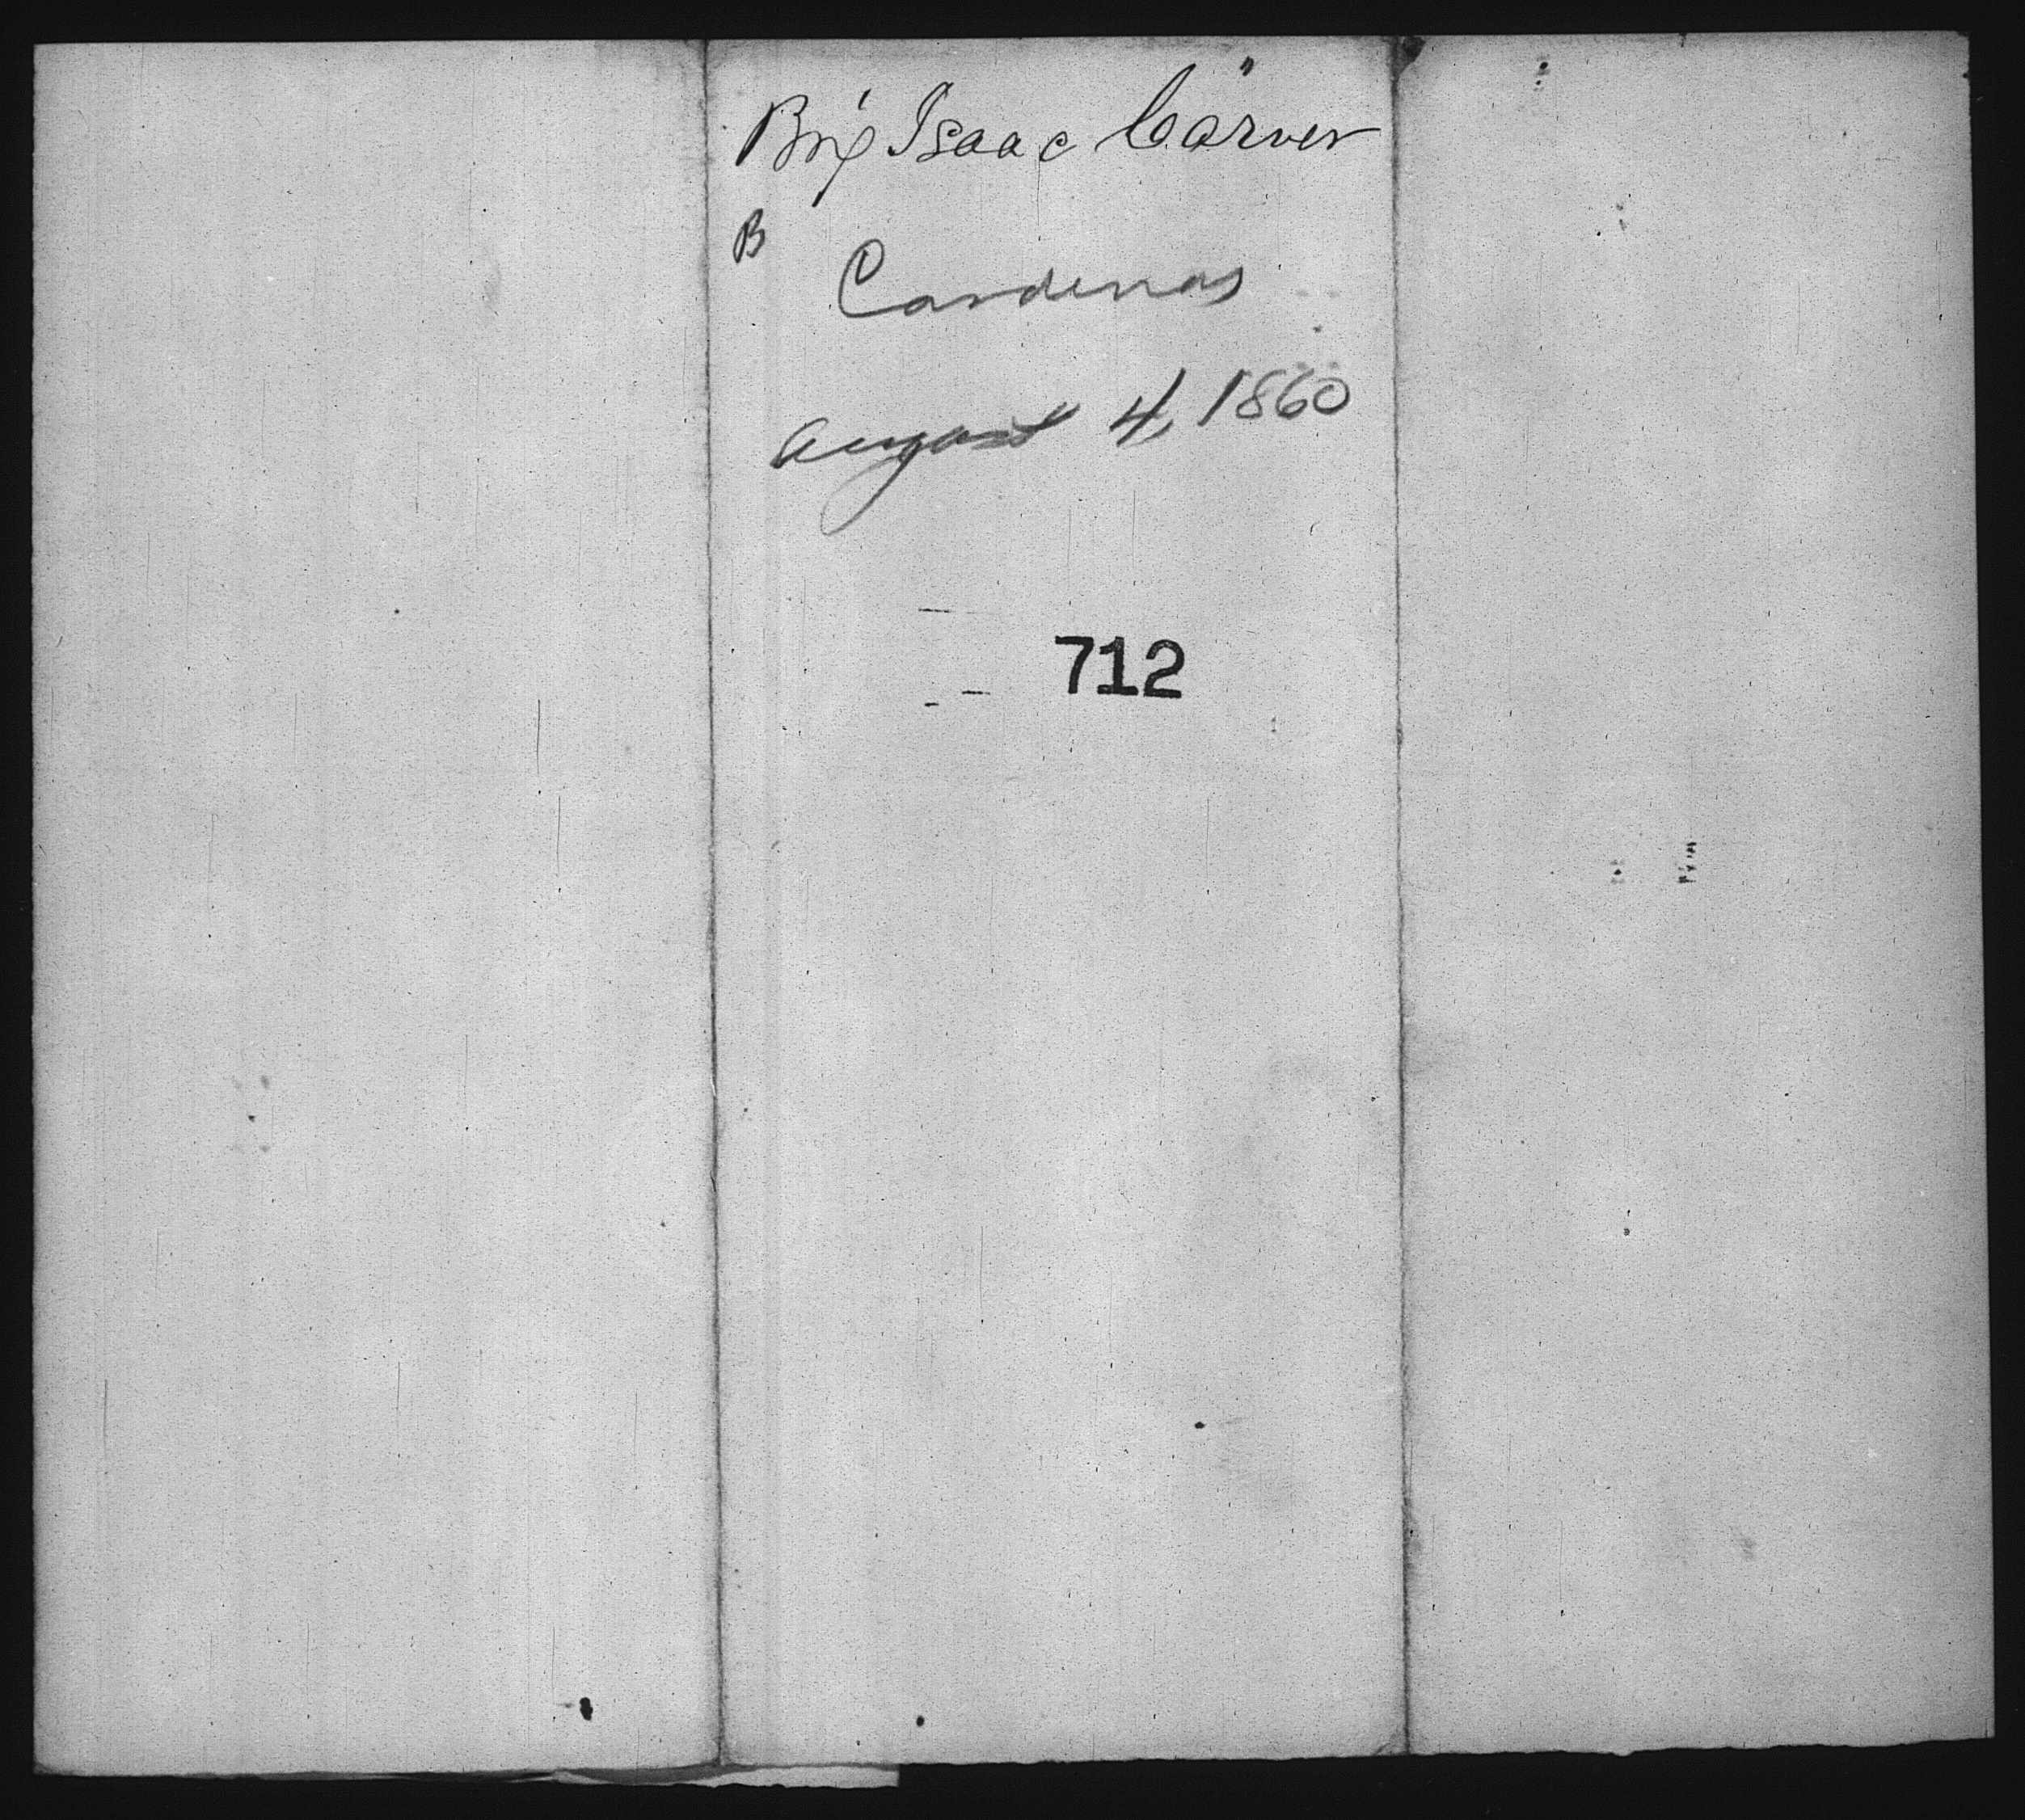 Brig Isaac Carver"
B
Cardenas
August 4, 1860
712